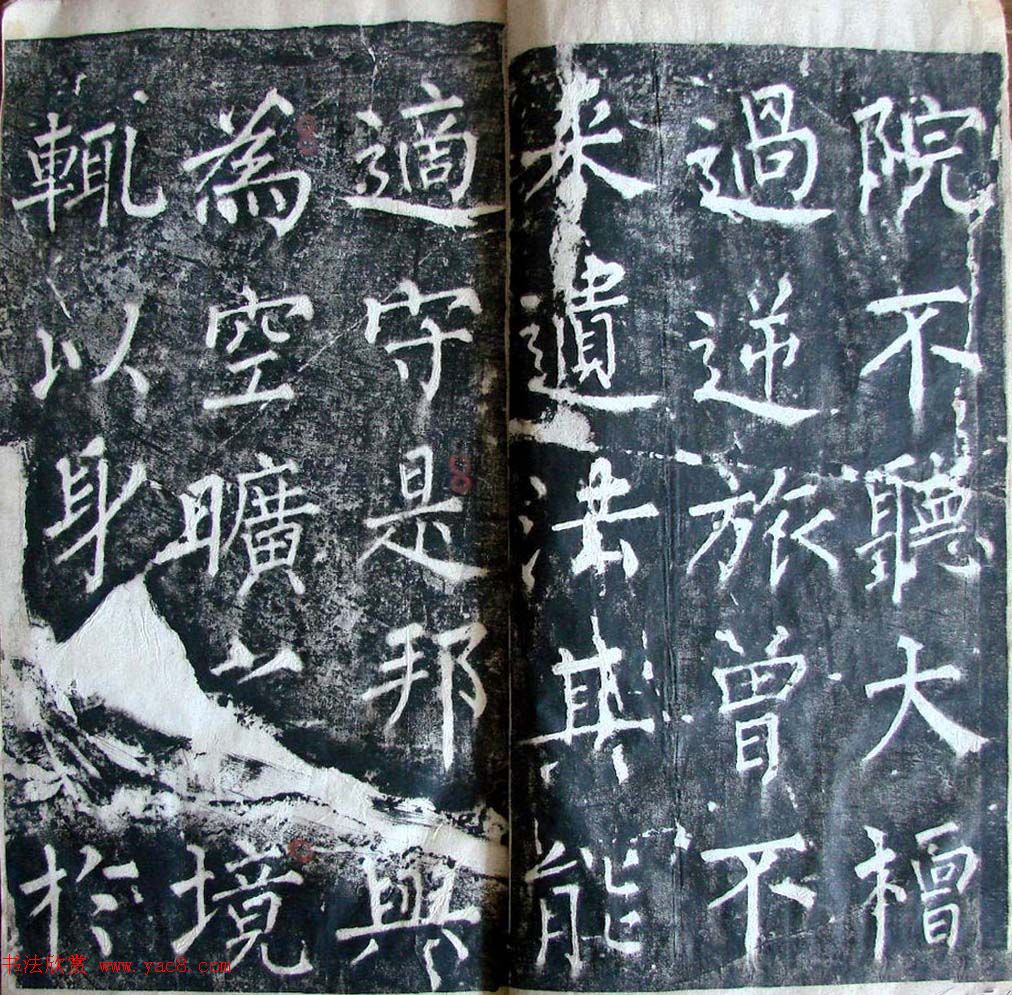 院不聽大檀
過逆旅曾不
来遺法其能
適守是邦與
為空曠境
輒以身於
书法欣赏 www.yac8.com